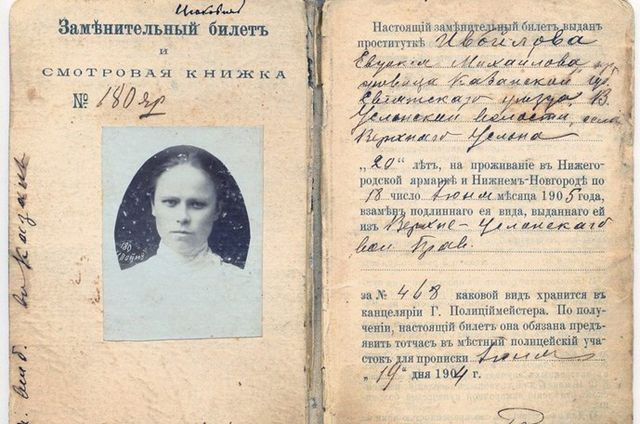 Замѣнительный билетъ
и
СМОТРОВАЯ КНИЖКА
№ 180 яр
въ Казани
Настоящій замѣнительный билетъ выданъ
проституткѣ
Евдокія Михайлова
Казанской губ.
уѣзда, В.
Услонской волости, села
Верхняго Услона
„20" лѣтъ, на проживаніе въ Нижего-
родской ярмаркѣ и Нижнемъ-Новгородѣ по
18 число мѣсяца 1905 года,
взамѣнъ подлиннаго ея вида, выданнаго ей
изъ Верхне-Услонскаго
вол. Прав.
за № 468 каковой видъ хранится въ
канцеляріи Г. Полиціймейстера. По полу-
ченіи, настоящій билетъ она обязана предъ-
явить тотчасъ въ мѣстный полицейскій уча-
стокъ для прописки
„19" дня 1904 г.